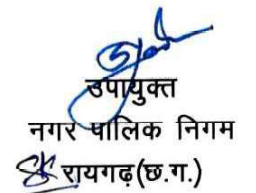 उपायुक्त
नगर पालिक निगम
रायगढ़(छ.ग.)